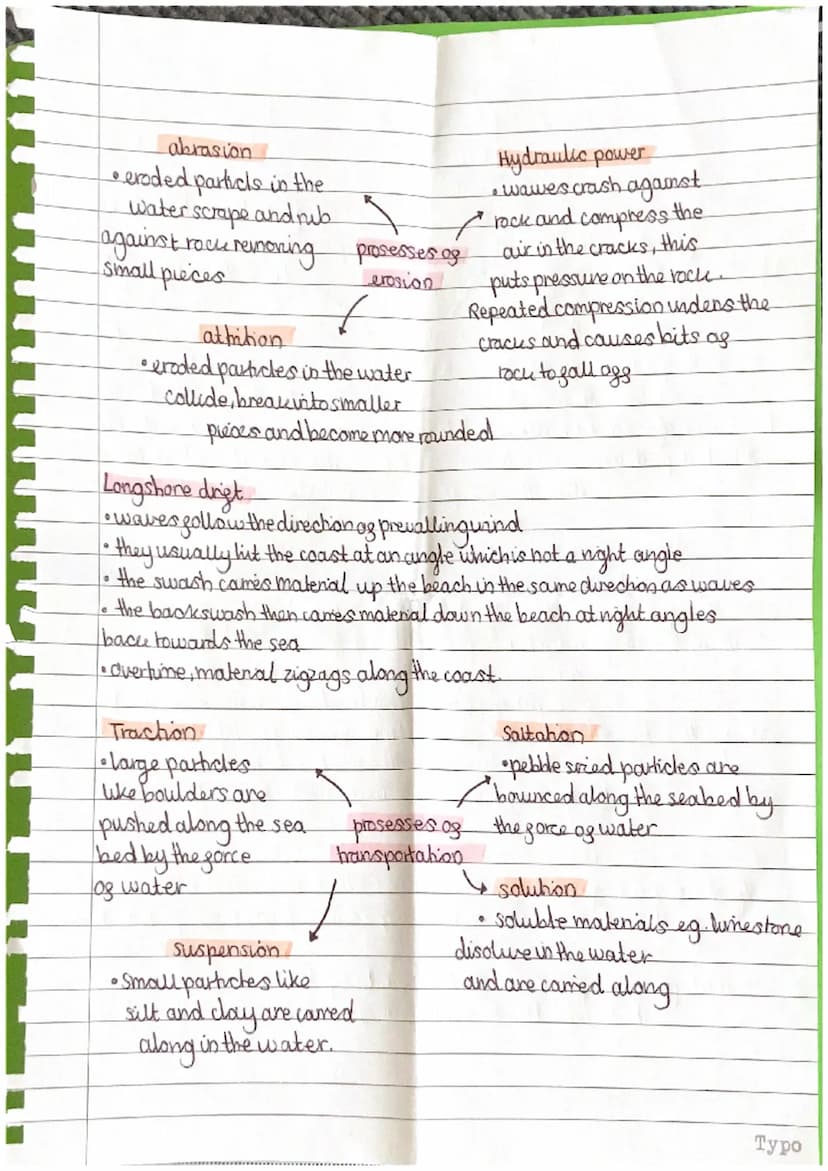 abrasion
• eroded particls in the
water scrape and rub
against rock removing
small pieces
prosesses of
erosion
Hydraulic power
• waves crash against
rock and compress the
air in the cracks, this
puts pressure on the rock.
Repeated compression widens the
cracks and causes bits of
rock to fall off
attrition
• eroded particles in the water
collide, break into smaller
pieces and become more rounded
Longshore drift
• waves follow the direction of prevailing wind
• they usually hit the coast at an angle which is not a right angle
• the swash carries material up the beach in the same direction as waves
• the backswash then carries material down the beach at right angles
back towards the sea
• overtime, material zigzags along the coast.
Traction
• large particles
like boulders are
pushed along the sea
bed by the force
of water
prosesses of
transportation
Saltation
• pebble sized particles are
bounced along the seabed by
the force of water
solution
• soluble materials eg. limestone
disolve in the water
and are carried along
suspension
• small particles like
silt and clay are carred
along in the water.
Typo